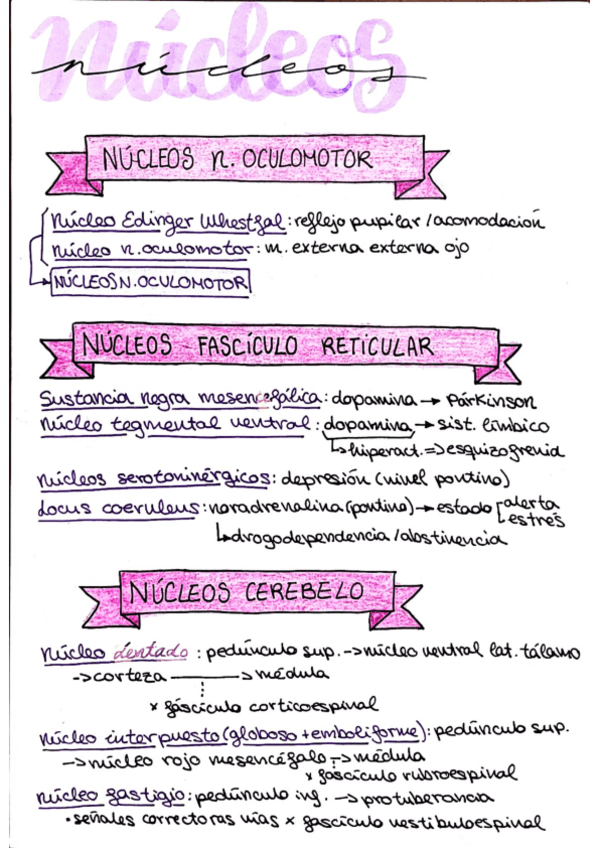 Núcleos
núcleos
NÚCLEOS n. OCULOMOTOR
Núcleo Edinger Whestfal: reflejo pupilar / acomodación
Núcleo n. oculomotor: m. externa externa ojo
NÚCLEOS N. OCULOMOTOR
NÚCLEOS FASCÍCULO RETICULAR
Sustancia negra mesencefálica: dopamina → Párkinson
Núcleo tegmental ventral: dopamina → sist. límbico
↳ hiperact. => esquizofrenia
Núcleos serotoninérgicos: depresión (nivel pontino)
Locus coeruleus: noradrenalina (pontino) → estado [alerta
estrés
↳ drogodependencia / abstinencia
NÚCLEOS CEREBELO
Núcleo dentado: pedúnculo sup. -> núcleo ventral lat. tálamo
-> corteza -> médula
x fascículo corticoespinal
Núcleo interpuesto (globoso + emboliforme): pedúnculo sup.
-> núcleo rojo mesencéfalo -> médula
x fascículo rubroespinal
Núcleo fastigio: pedúnculo inf. -> protuberancia
• señales correctoras vías x fascículo vestibuloespinal